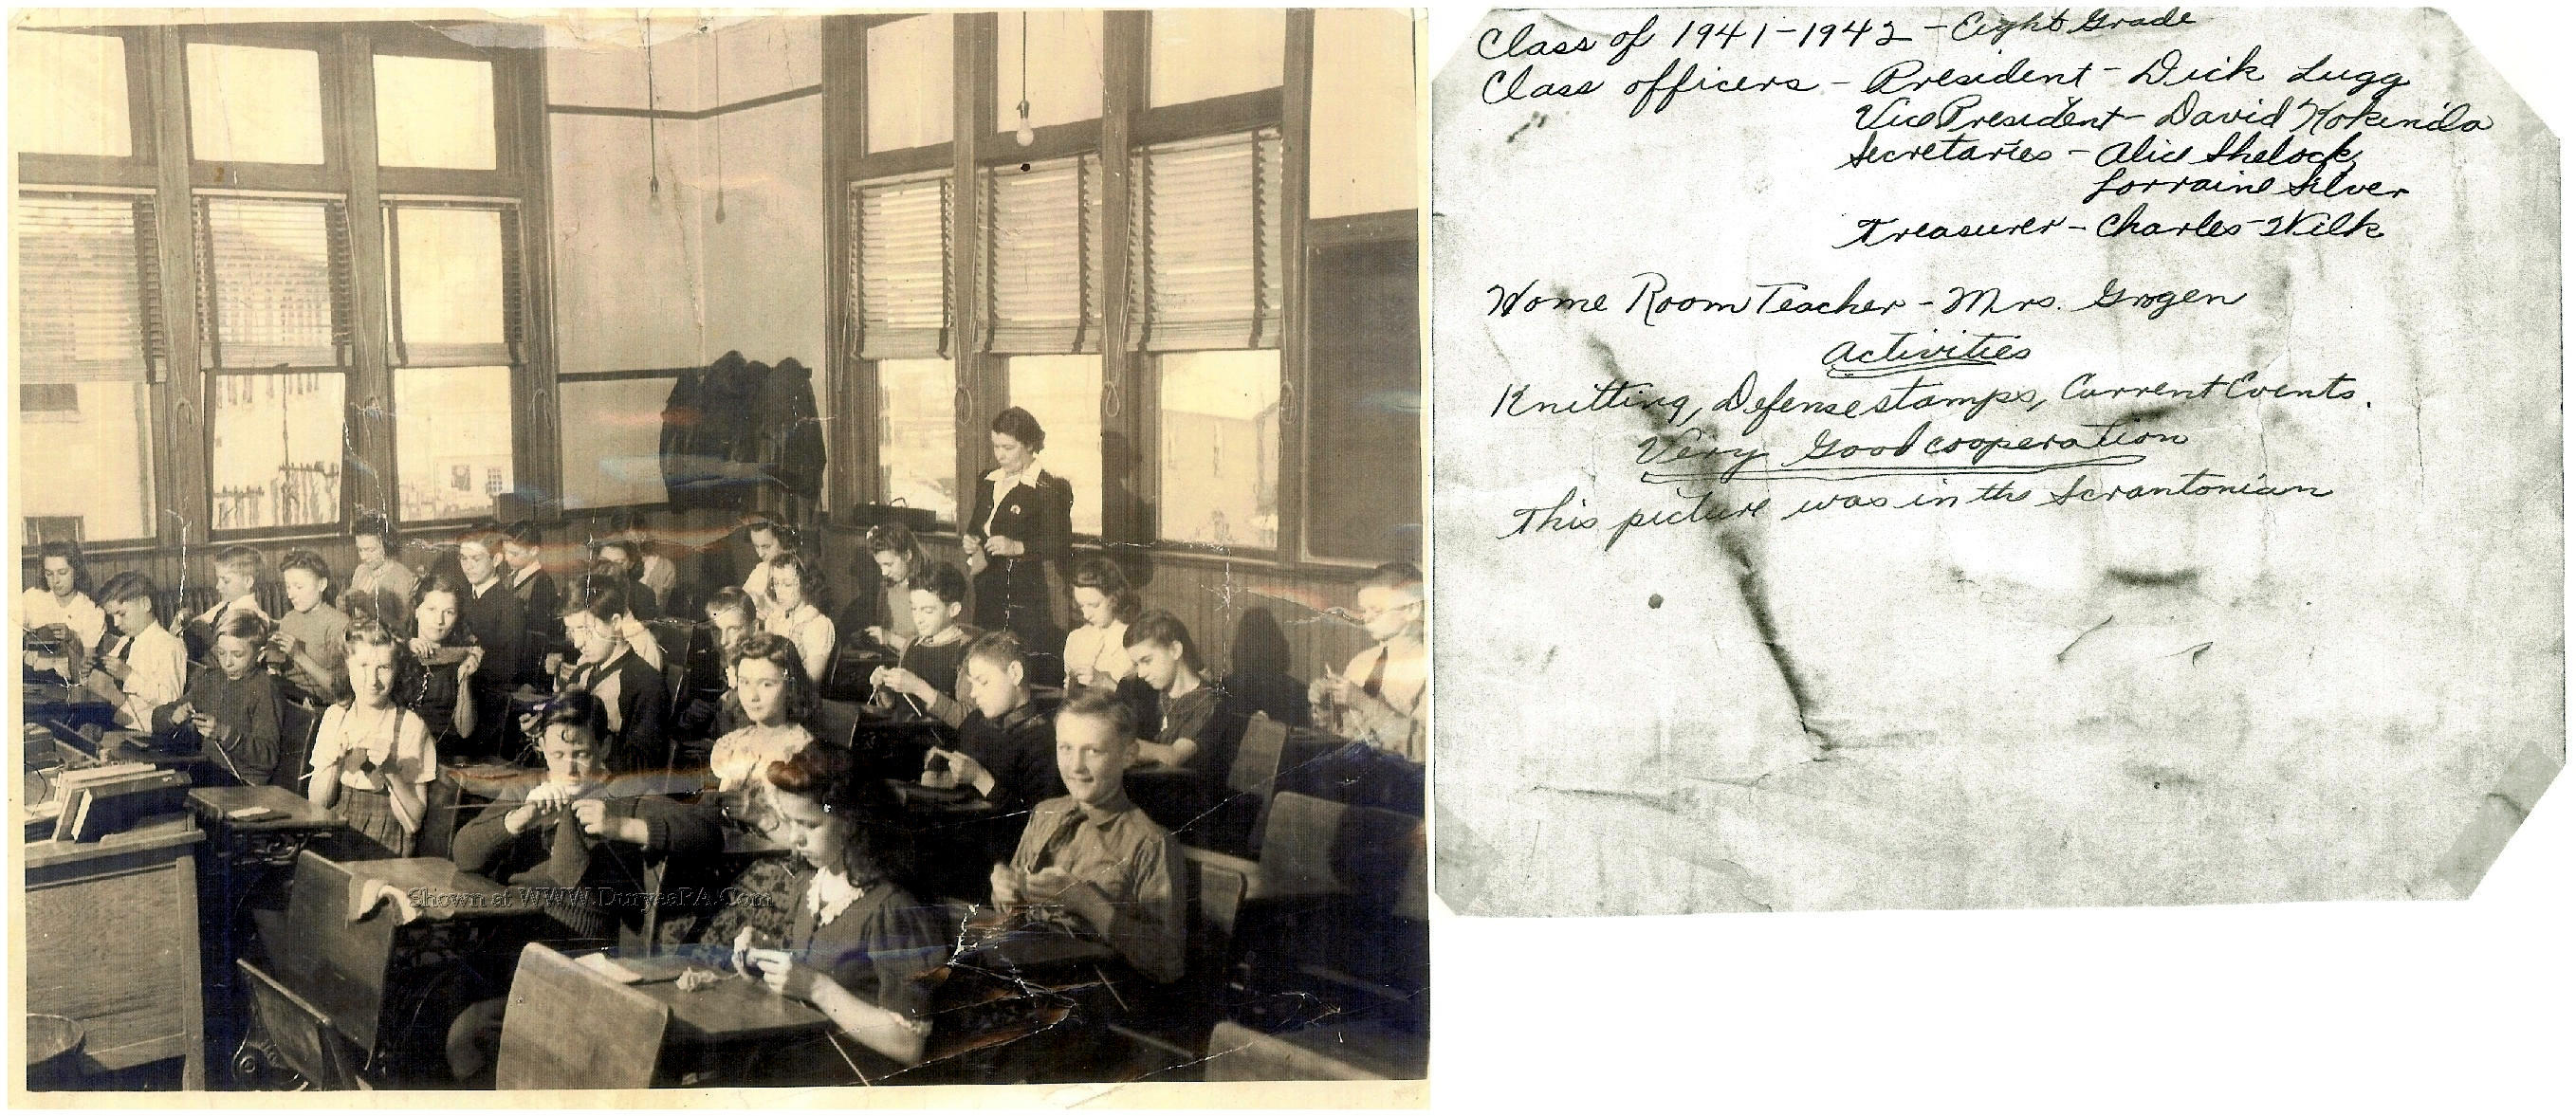 Shown at WWW.DuryeaPA.Com
Class of 1941-1942 - Eight Grade
Class officers - President - Dick Lugg
Vice President - David Kokinda
Secretaries - Alice Shelock
Lorraine Silver
Treasurer - Charles Wilk
Home Room Teacher - Mrs. Grogen
Activities
Knitting, Defense stamps, Current Events.
Very Good cooperation
This picture was in the Scrantonian